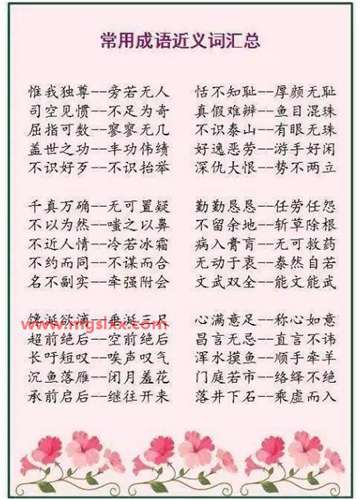 常用成语近义词汇总
惟我独尊--旁若无人 恬不知耻--厚颜无耻
司空见惯--不足为奇 真假难辨--鱼目混珠
屈指可数--寥寥无几 不识泰山--有眼无珠
盖世之功--丰功伟绩 好逸恶劳--游手好闲
不识好歹--不识抬举 深仇大恨--势不两立
千真万确--无可置疑 勤勤恳恳--任劳任怨
不以为然--嗤之以鼻 不留余地--斩草除根
不近人情--冷若冰霜 病入膏肓--无可救药
不约而同--不谋而合 无动于衷--泰然自若
名不副实--牵强附会 文武双全--能文能武
馋涎欲滴--垂涎三尺 心满意足--称心如意
www.mgslxx.com
超前绝后--空前绝后 昌言无忌--直言不讳
长吁短叹--唉声叹气 浑水摸鱼--顺手牵羊
沉鱼落雁--闭月羞花 门庭若市--络绎不绝
承前启后--继往开来 落井下石--乘虚而入